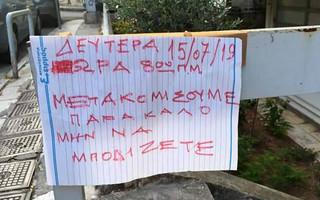 ΔΕΥΤΕΡΑ 15/07/19
ΩΡΑ 800 Π.Μ
ΜΕΤΑΚΟΜΙΣΟΥΜΕ
ΠΑΡΑΚΑΛΟ
ΜΗΝ ΝΑ
ΜΠΟΔΙΖΕΤΕ